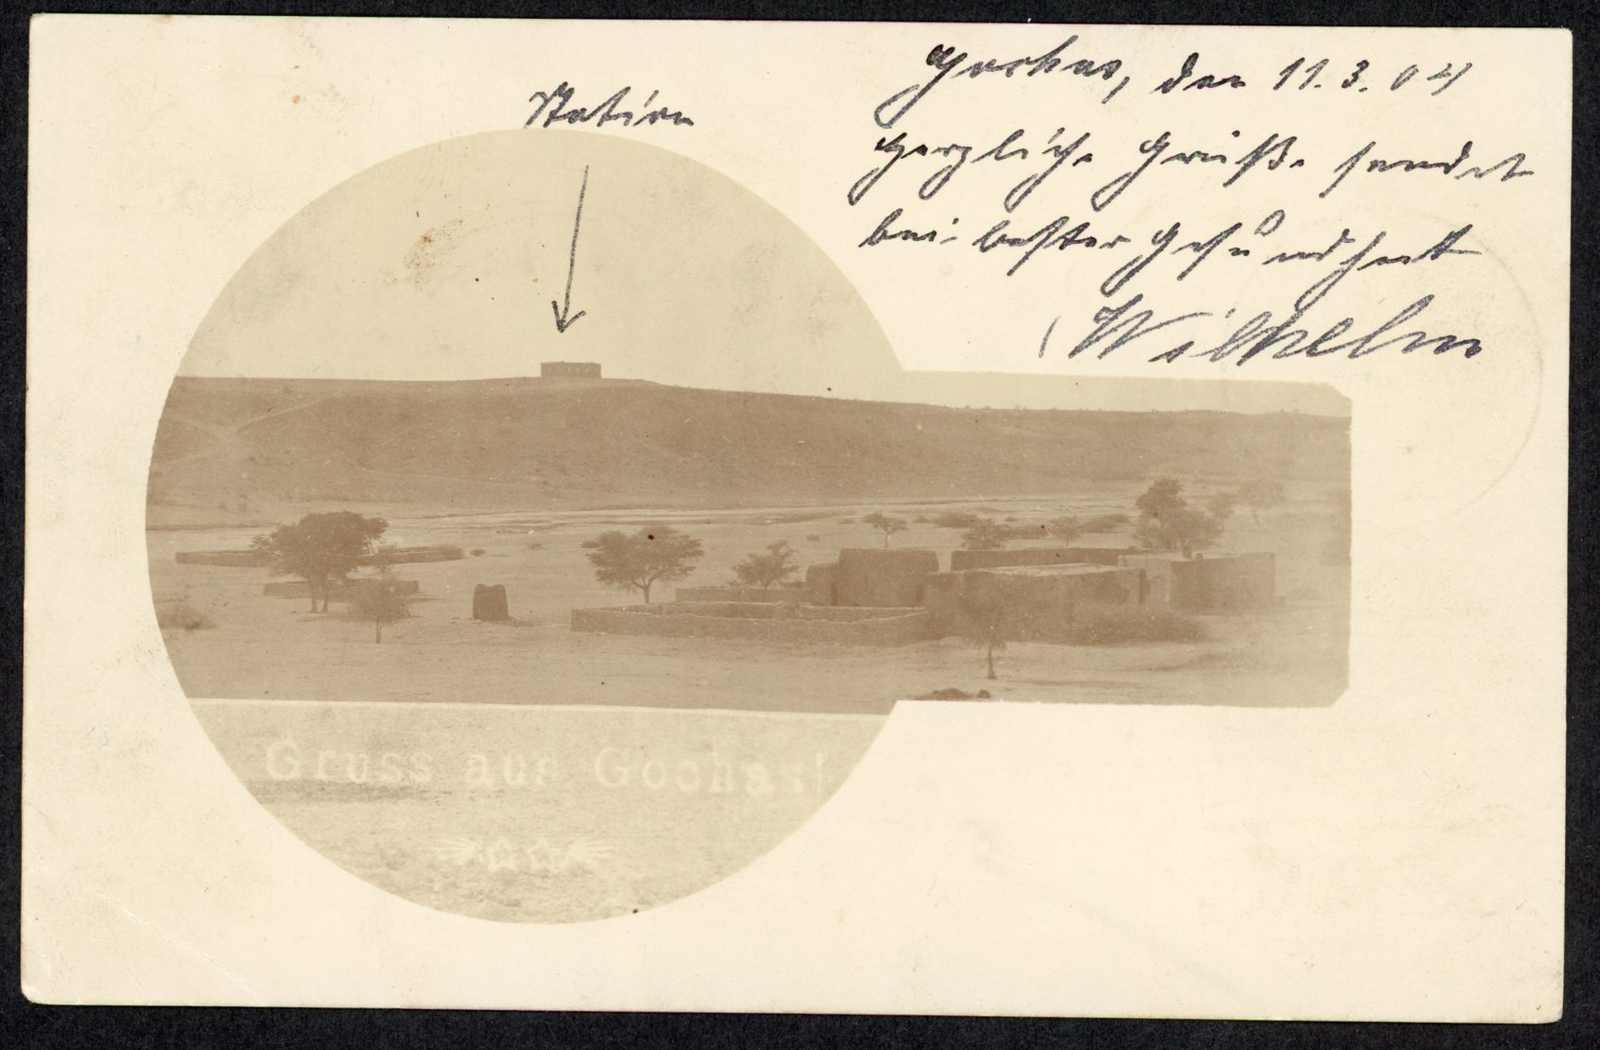 Station
Gochas, den 11.3.04
Herzliche Grüße sendet
bei bester Gesundheit
Wilhelm
Gruss aus Gochas!